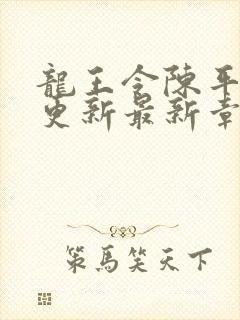 龍王令陳平
更新最新章
策馬笑天下